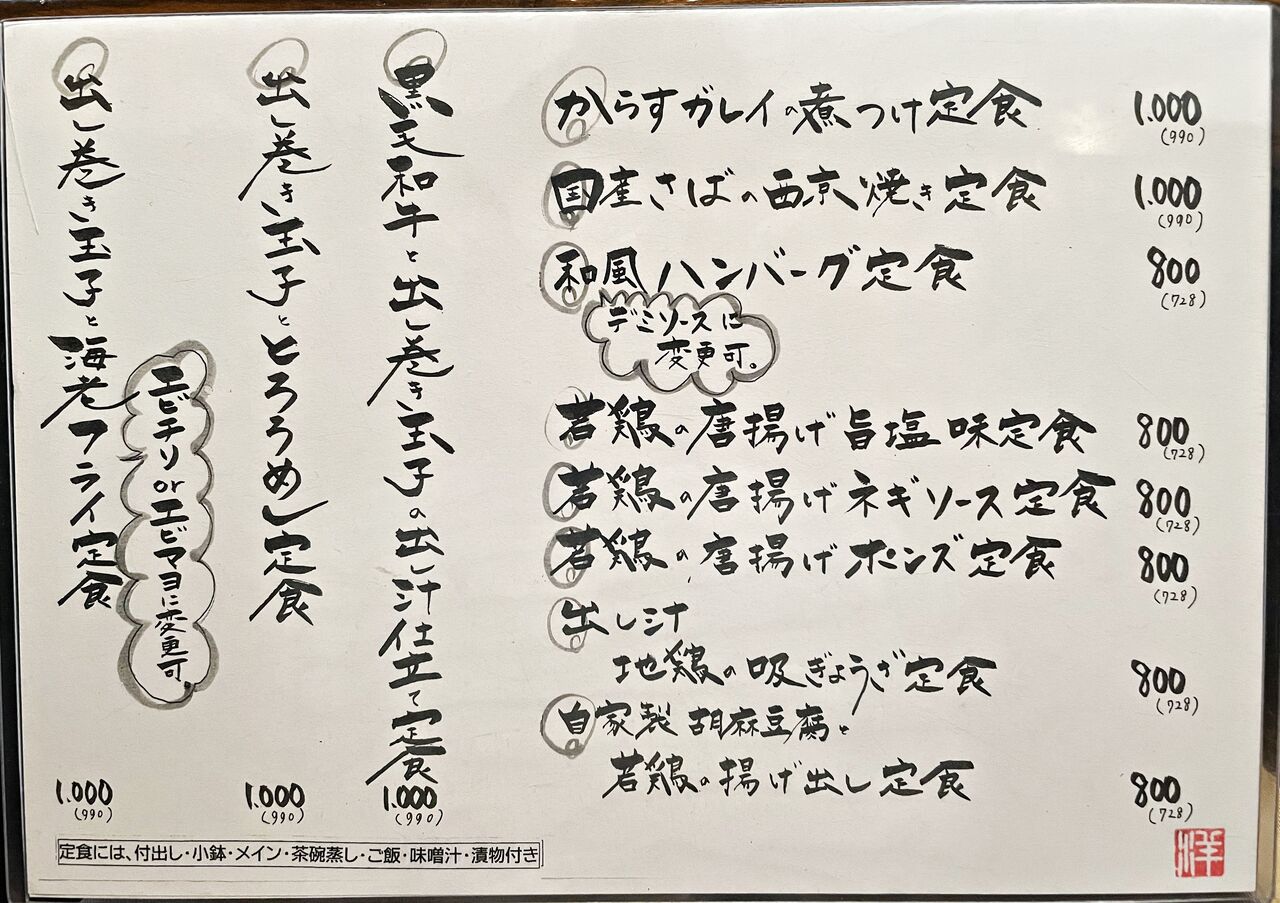 からすガレイの煮つけ定食 1.000
(990)
国産さばの西京焼き定食 1.000
(990)
和風ハンバーグ定食 800
(728)
デミソースに
変更可。
若鶏の唐揚げ旨塩味定食 800
(728)
若鶏の唐揚げネギソース定食 800
(728)
若鶏の唐揚げポンズ定食 800
(728)
出し汁
地鶏の吸ぎょうざ定食 800
(728)
自家製胡麻豆腐と
若鶏の揚げ出し定食 800
(728)
黒毛和牛と出し巻き玉子の出し汁仕立て定食
1.000
(990)
出し巻き玉子ととろろめし定食
1.000
(990)
出し巻き玉子と海老フライ定食
エビチリorエビマヨに変更可。
1.000
(990)
定食には、付出し・小鉢・メイン・茶碗蒸し・ご飯・味噌汁・漬物付き
洋